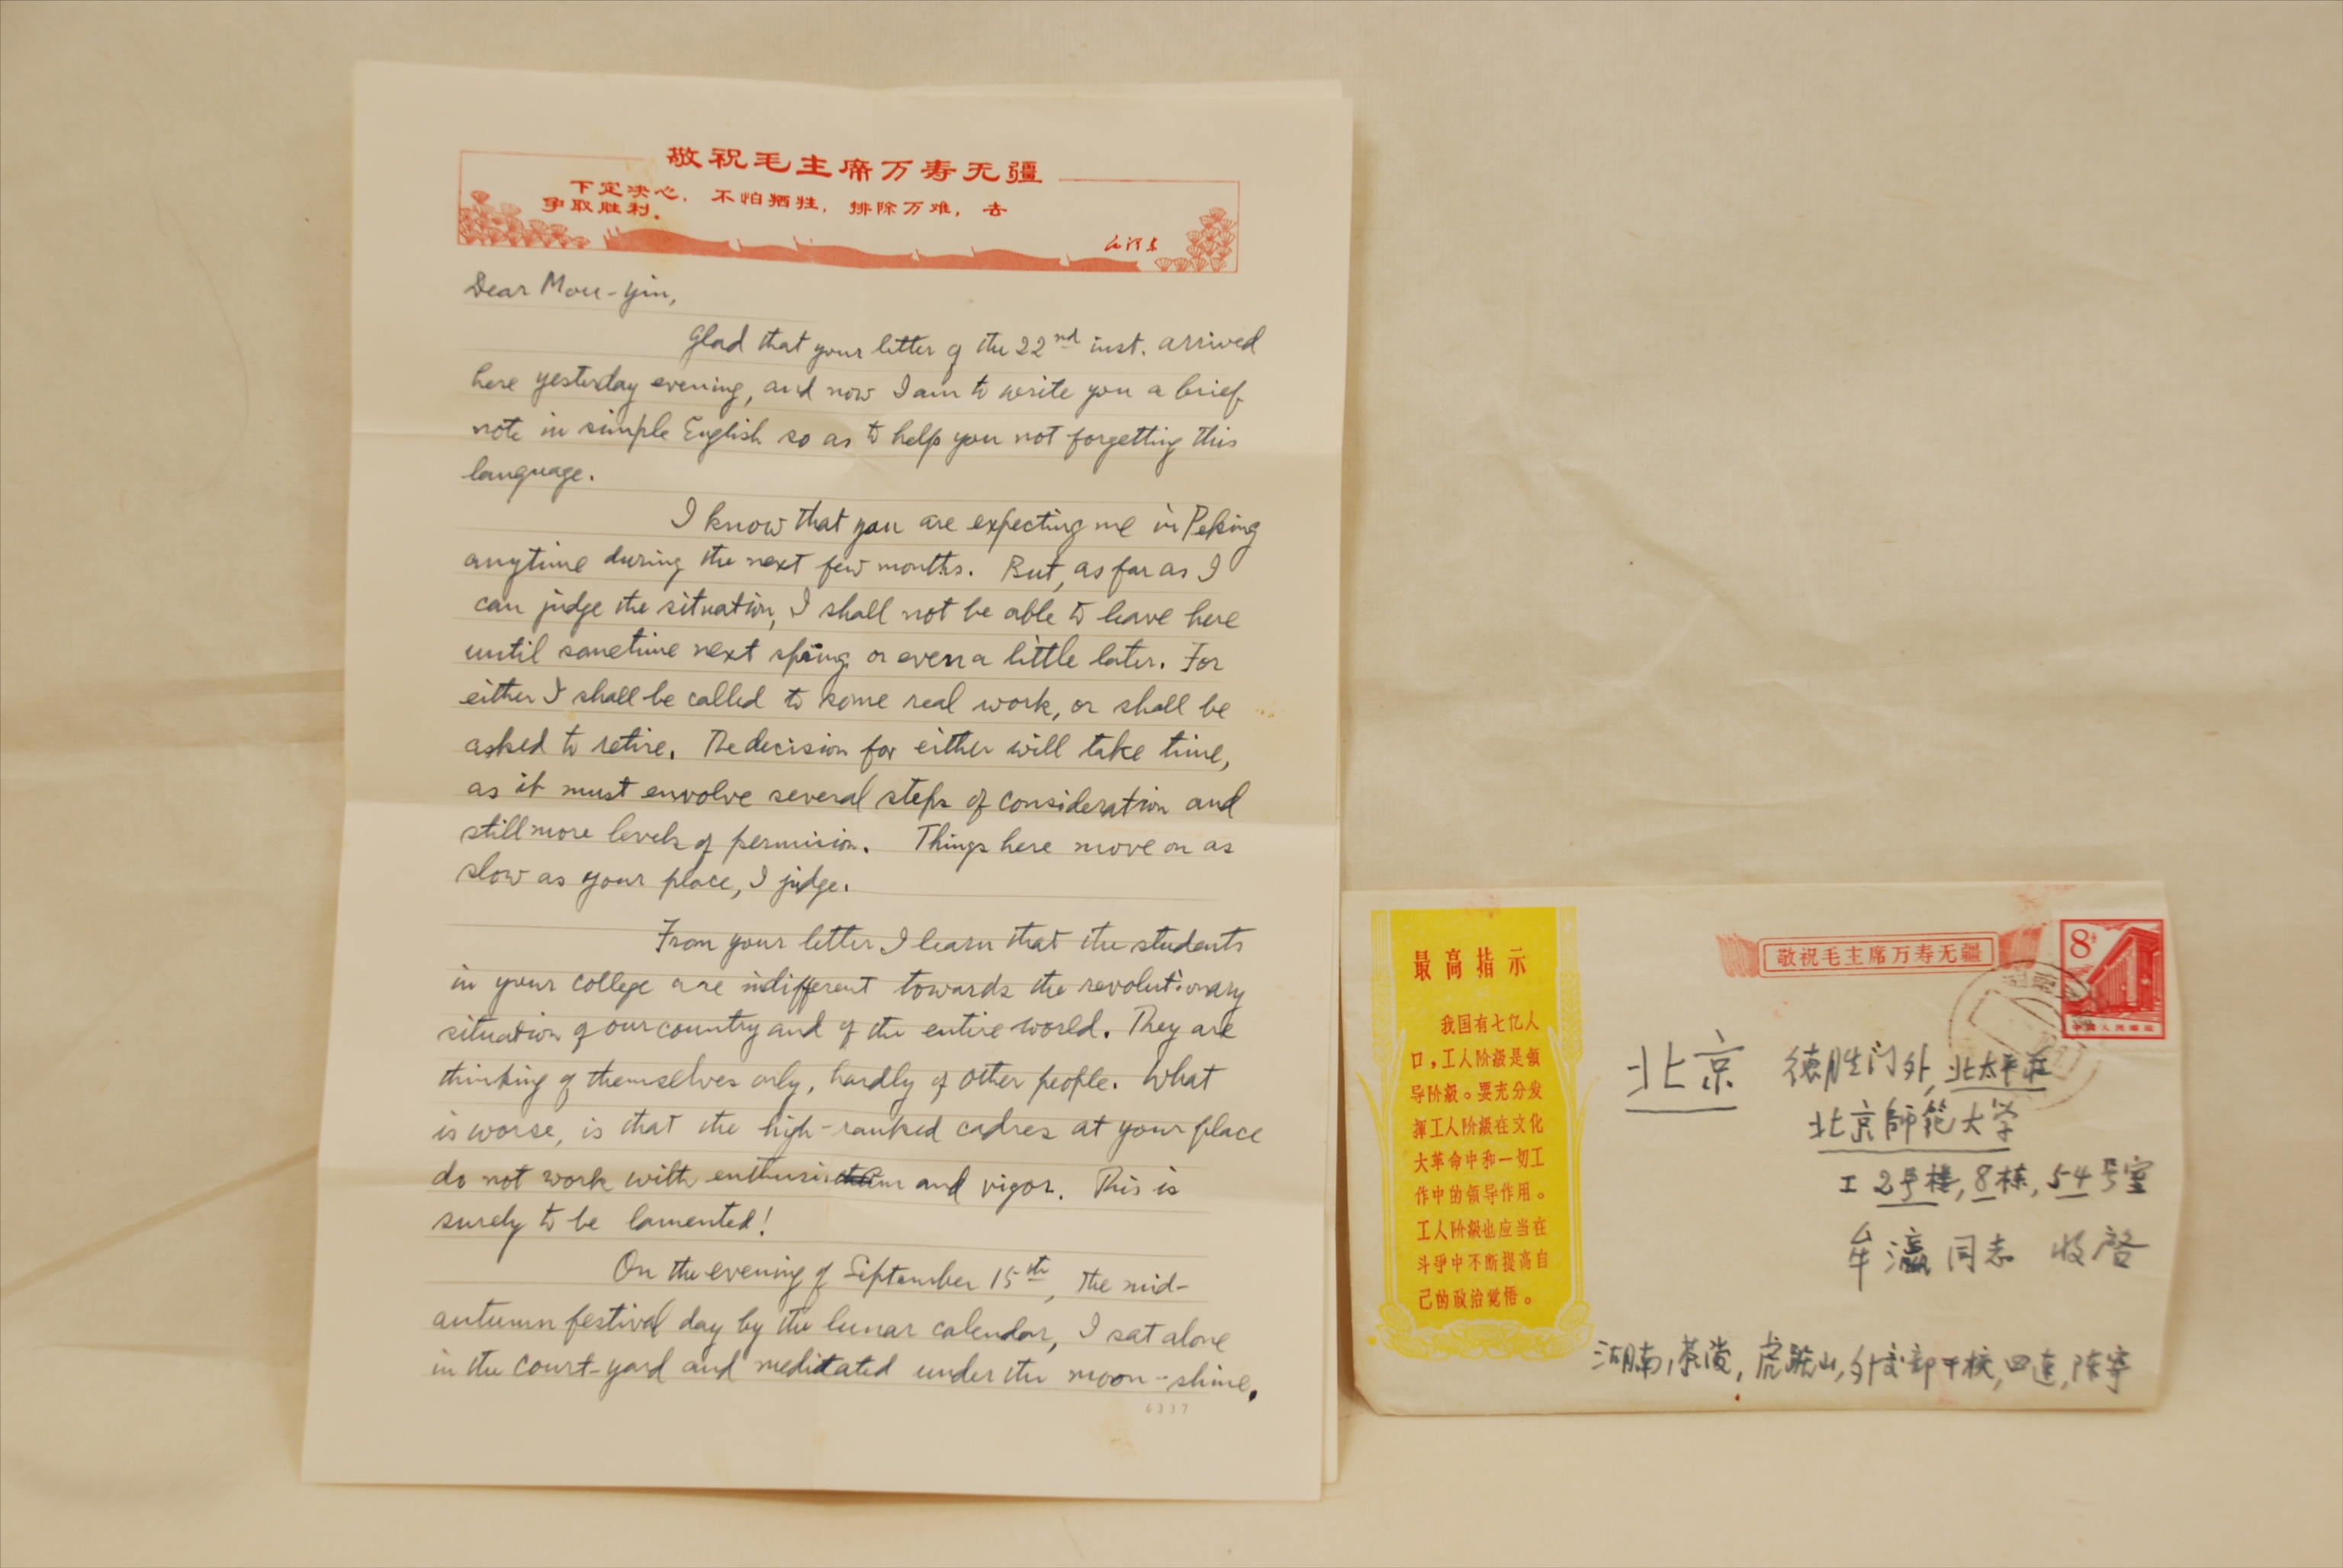 敬祝毛主席万寿无疆
下定决心，不怕牺牲，排除万难，去
争取胜利。
毛泽东
Dear Mou-yin,
Glad that your letter of the 22nd inst. arrived
here yesterday evening, and now I am to write you a brief
note in simple English so as to help you not forgetting this
language.
I know that you are expecting me in Peking
anytime during the next few months. But, as far as I
can judge the situation, I shall not be able to leave here
until sometime next spring or even a little later. For
either I shall be called to some real work, or shall be
asked to retire. The decision for either will take time,
as it must envolve several steps of consideration and
still more levels of permision. Things here move on as
slow as your place, I judge.
From your letter I learn that the students
in your college are indifferent towards the revolutionary
situation of our country and of the entire world. They are
thinking of themselves only, hardly of other people. What
is worse, is that the high-ranked cadres at your place
do not work with and vigor. This is
surely to be lamented!
On the evening of September 15th, the mid-
autumn festival day by the lunar calendar, I sat alone
in the court-yard and meditated under the moon-shine.
6337
最高指示
我国有七亿人
口，工人阶级是领
导阶级。要充分发
挥工人阶级在文化
大革命中和一切工
作中的领导作用。
工人阶级也应当在
斗争中不断提高自
己的政治觉悟。
敬祝毛主席万寿无疆
8分
中国人民邮政
北京 德胜门外，北太平庄
北京師範大学
工2号楼，8栋，54号室
牟瀛同志 收启
湖南，茶陵，虎踞山，外交部干校，四连，陈